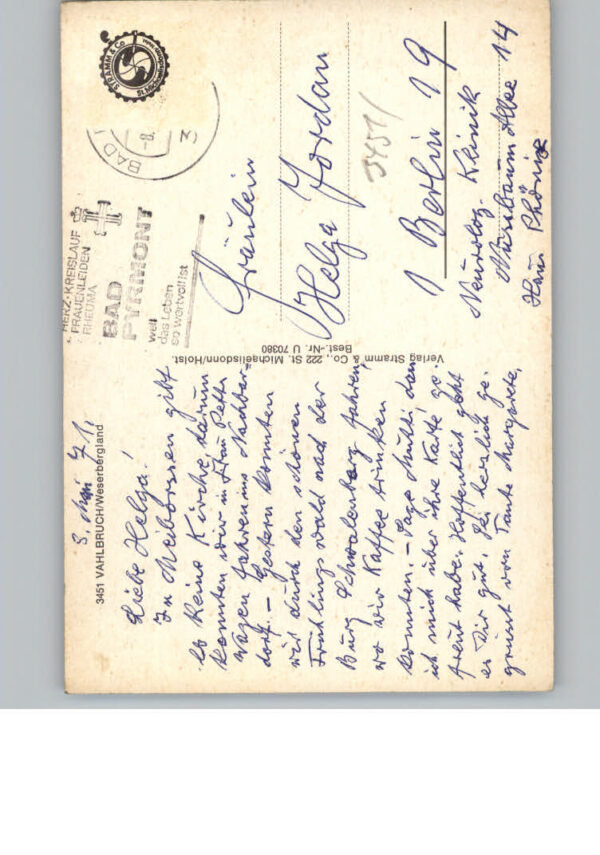 3. Mai 71.
3451 VAHLBRUCH/Weserbergland
Liebe Helga!
In Meiborssen gibt
es keine Kirche, darum
konnten wir in Frau
wagen fahren ins Nachbar-
dorf. – Gestern konnten
wir durch den schönen
Frühlingswald nach der
Burg Schwalenberg fahren,
wo wir Kaffee trinken
konnten. – Sage Mutti, dass
ich mich über ihre Karte ge-
freut habe. Hoffentlich geht
es Dir gut. Sei herzlich ge-
grüsst von Tante Margarete.
Verlag Stramm & Co., 222 St. Michaelisdonn/Holst.
Best.-Nr. U 70380
HERZ-KREISLAUF
FRAUENLEIDEN
RHEUMA
BAD
PYRMONT
weil
das Leben
so wertvoll ist
BAD
-8.
STRAMM & Co
ST. MICHAELISDONN
Fräulein
Helga Jordan
3451/
1 Berlin 19
Neurolog. Klinik
Nussbaum Allee 14
Haus Phönix